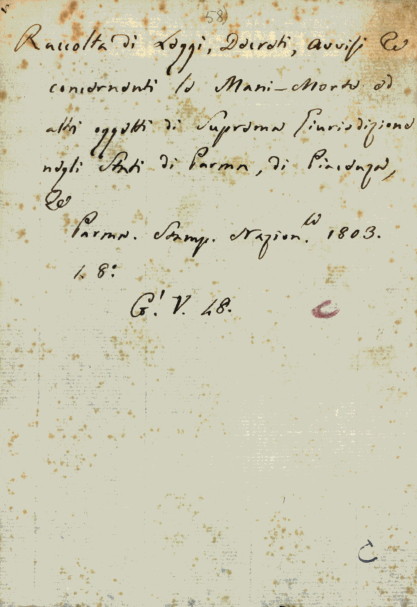 58)
Raccolta di Leggi, Decreti, Avvisi &c
concernenti le Mani-Morte ed
altri oggetti di Suprema Giurisdizione
negli Stati di Parma, di Piacenza,
&c
Parma. Stamp. Nazion.le 1803.
1. 8.°
G! V. 48.
C
C